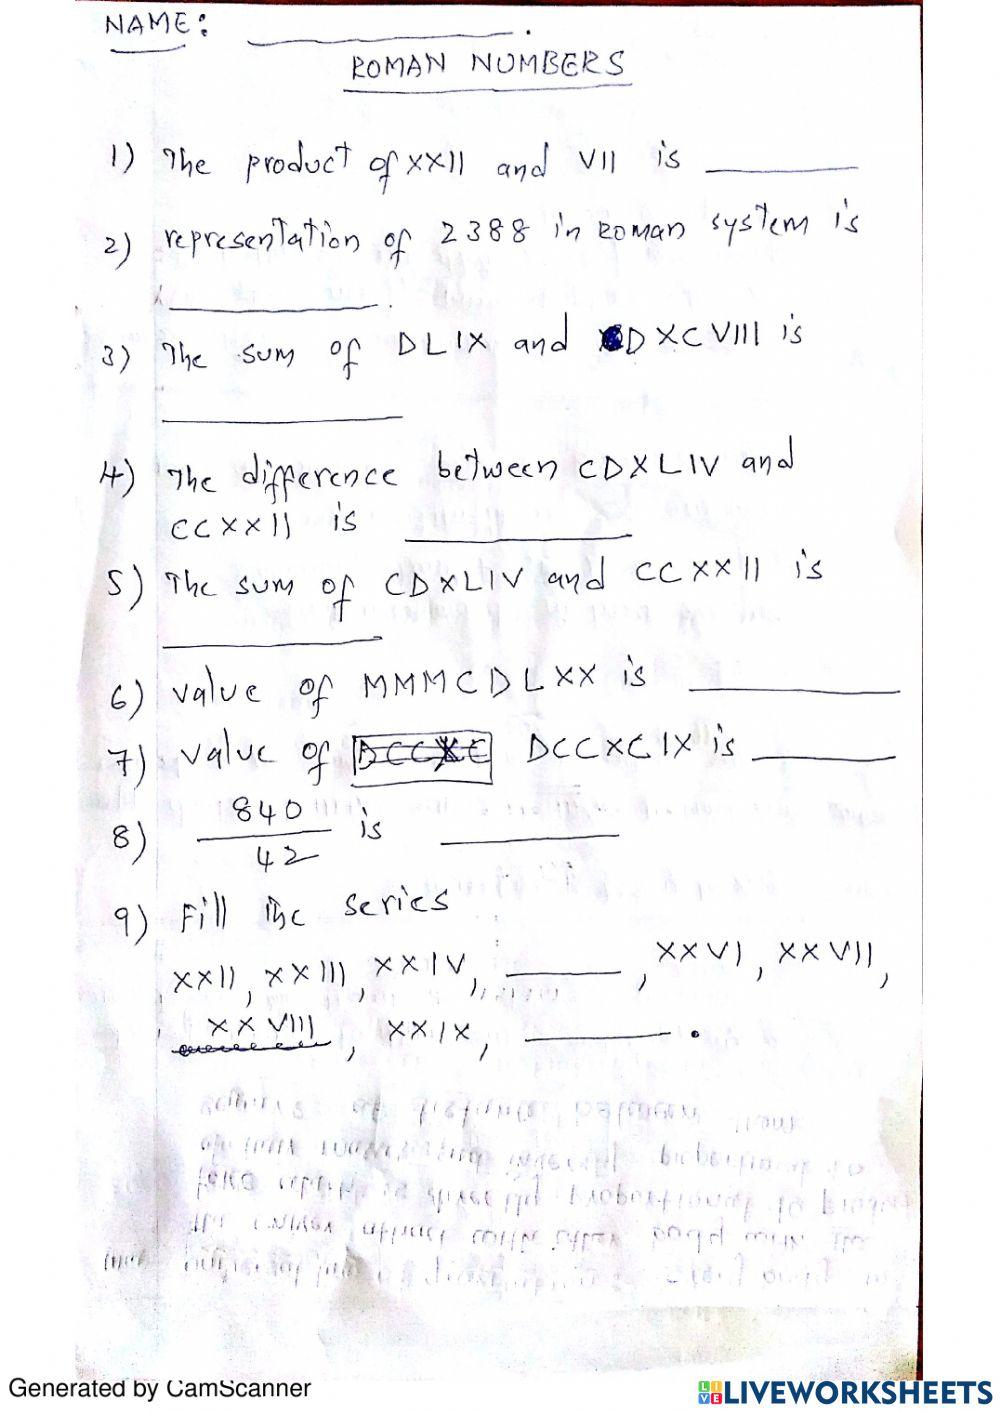 NAME: ___________.
ROMAN NUMBERS
1) The product of XXII and VII is ________
2) representation of 2388 in Roman system is
___________.
3) The sum of DLIX and DXCVIII is
___________
4) The difference between CDXLIV and
CCXXII is ___________
5) The sum of CDXLIV and CCXXII is
___________
6) value of MMMCDLXX is ___________
7) value of DCCXC DCCXCIX is ________
8) 840
42 is ________
9) Fill the series
XXII, XXIII, XXIV, ______, XXVI, XXVII,
XXVIII, XXIX, ________.
Generated by CamScanner
LIVE LIVEWORKSHEETS